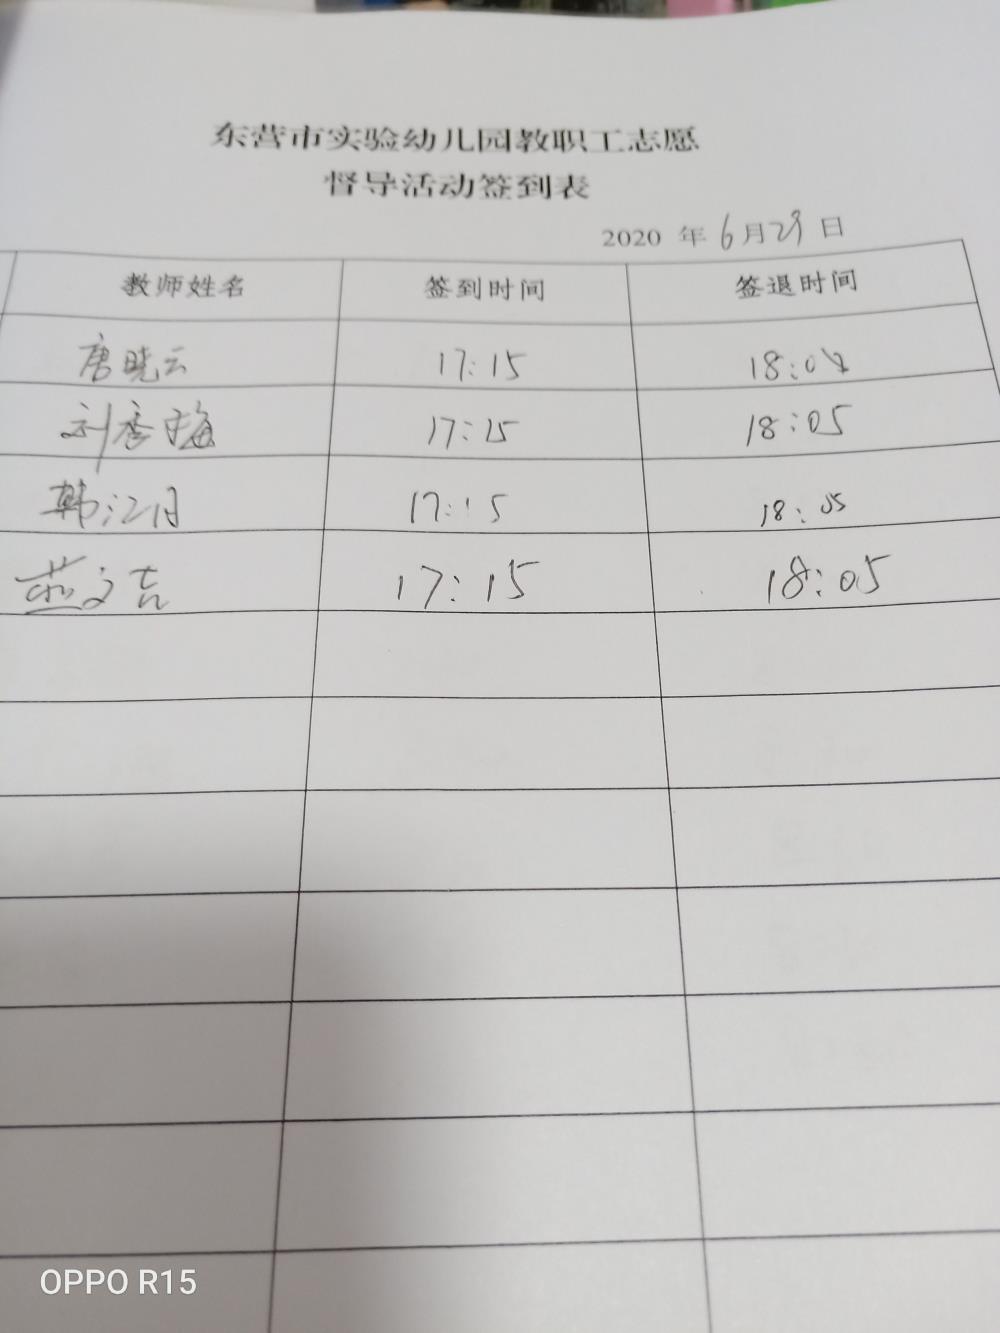 东营市实验幼儿园教职工志愿
督导活动签到表
2020 年 6月29日
教师姓名 签到时间 签退时间
唐晓云 17:15 18:04
刘秀梅 17:15 18:05
韩江月 17:15 18:05
燕文吉 17:15 18:05
OPPO R15